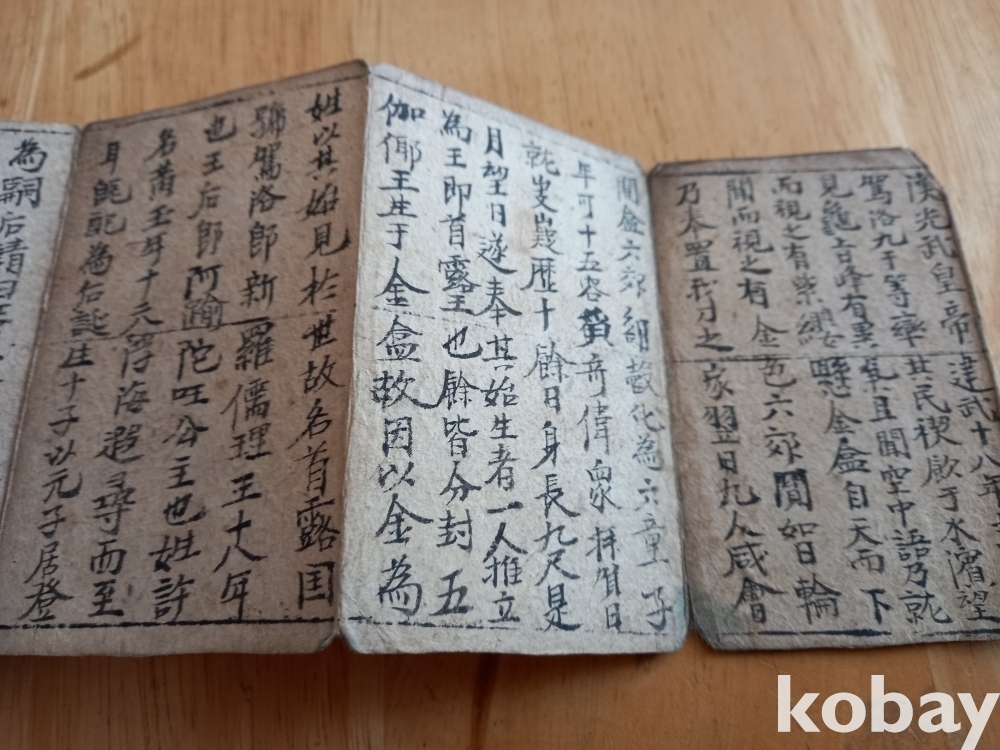 漢光武皇帝建武十八年
駕洛九干等率其民禊飮于水濱望
見龜旨峰有異氣且聞空中語乃就
而視之有紫纓懸金盒自天而下
開而視之有金色六卵圓如日輪
乃奉置我刀之家翌日九人咸會
開盒六卵剖殼化為六童子
年可十五容皃奇偉衆拜賀日
就岐嶷歷十餘日身長九尺是
月望日遂奉其始生者一人推立
為王即首露王也餘皆分封五
伽倻王生于金盒故因以金為
姓以其始見於世故名首露国
號駕洛即新羅儒理王十八年
也王后即阿踰陀国公主也姓許
名黄玉年十六浮海遐尋而至
配為后誕生十子以元子居登
為嗣后請曰
kobay